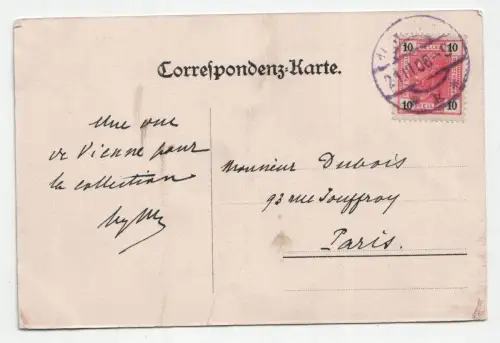 Correspondenz-Karte.
10 10
10 10
Une vue
de Vienne pour
la collection
Monsieur Dubois
93 rue Jouffroy
Paris.